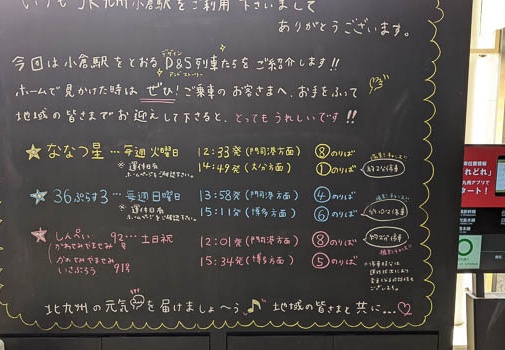 いつもJR九州小倉駅をご利用下さいまして
ありがとうございます。
今回は小倉駅をとおる D&S列車たちをご紹介します!!
デザイン
アンドストーリー
ホームで見かけた時は ぜひ! ご乗車のお客さまへ、お手をふって
地域の皆さまでお迎えして下さると、とってもうれしいです!!
ななつ星…毎週火曜日 12:33発(門司港方面) ⑧のりば
※運行日はホームページをご確認下さい。
14:49発(大分方面) ①のりば
36ぷらす3…毎週日曜日 13:58発(門司港方面) ④のりば
15:11発(博多方面) ⑥のりば
かわせみやませみ 92号…土日祝 12:01発(門司港方面) ⑧のりば
かわせみやませみ
いさぶろう 91号 15:34発(博多方面) ⑤のりば
北九州の元気を届けましょ〜う♪ 地域の皆さまと共に…♡